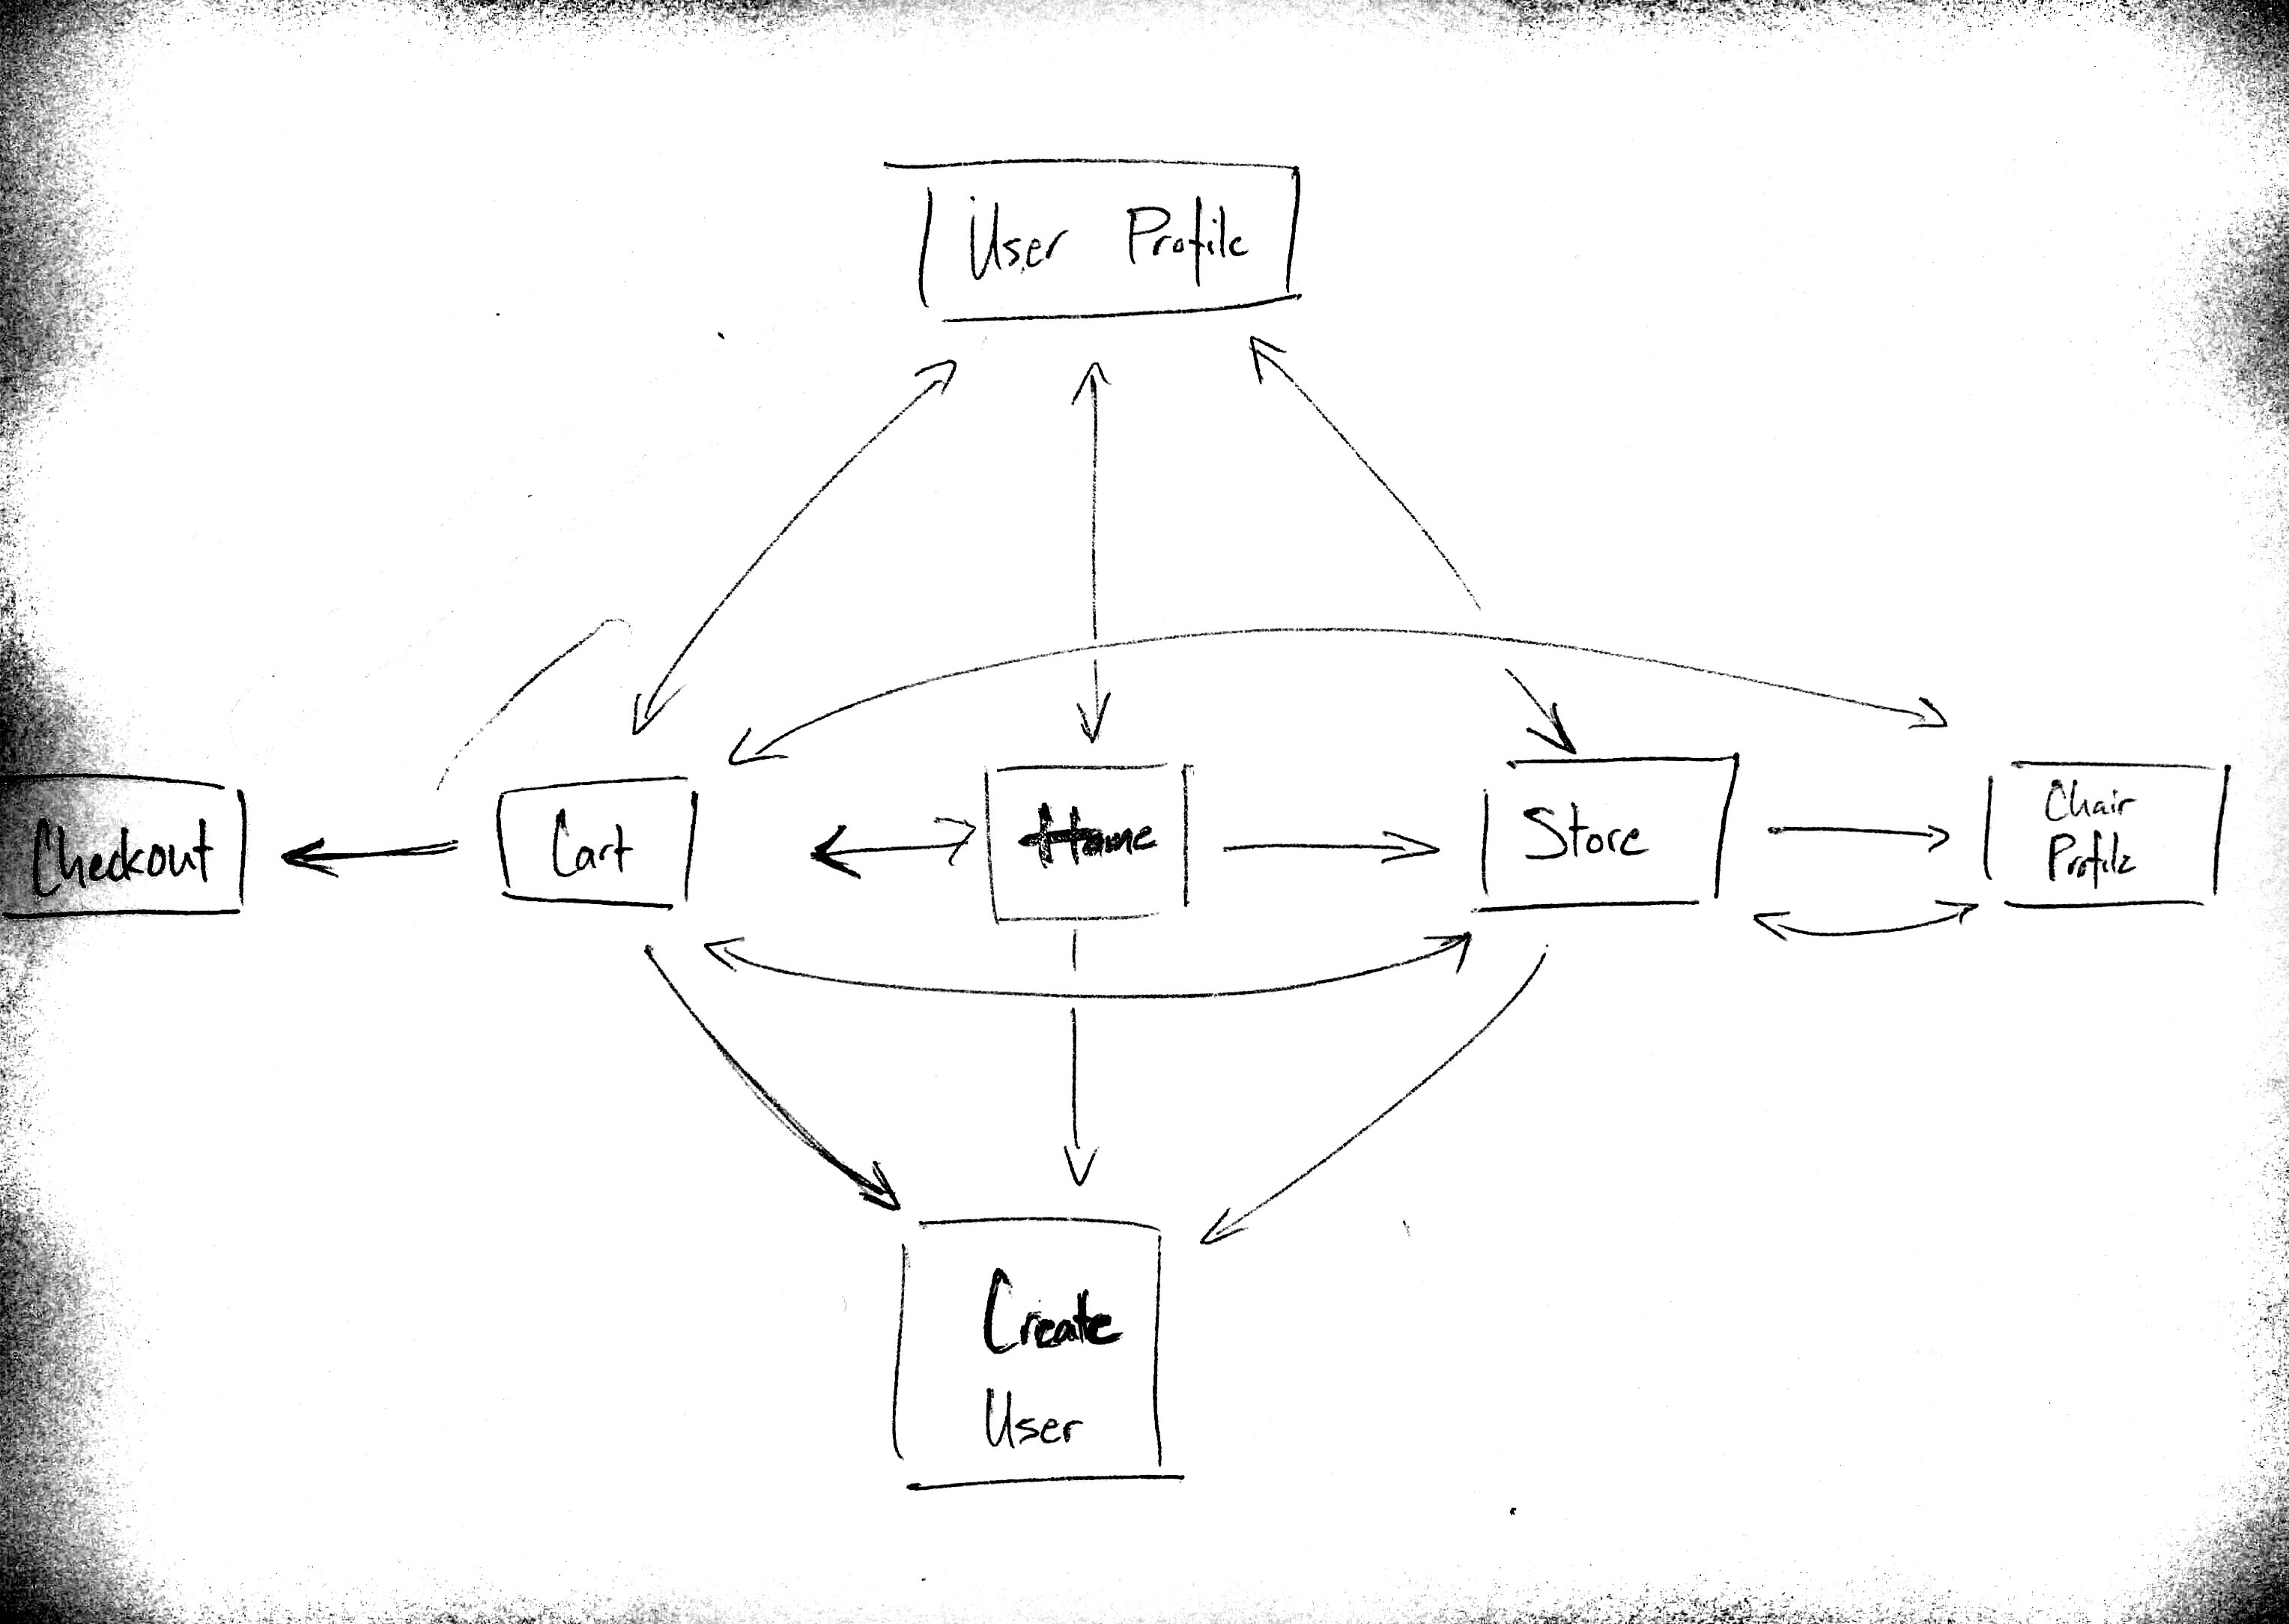 User Profile
Checkout
Cart
Home
Store
Chair
Profile
Create
User